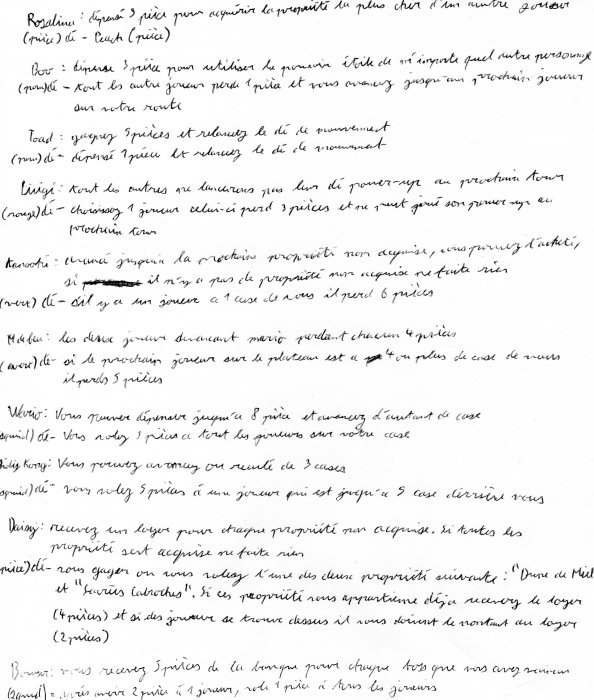 Rosalina : dépensé 3 pièce pour acquérir la propriété la plus cher d'un autre joueur
(pièce) dé - (pièce)
Boo : dépense 3 pièce pour utiliser le pouvoir étoile de n'importe quel autre personnage
dé - tout les autre joueur perde 1 pièce et vous avancez jusqu'au prochain joueur
sur votre route
Toad : gagnez 5 pièces et relancez le dé de mouvement
dé - dépensé 1 pièce et relancez le dé de mouvement
Luigi : tout les autres ne lancerons pas leur dé power-up au prochain tour
(rouge) dé - choisissez 1 joueur celui-ci perd 3 pièces et ne peut son power-up au
prochain tour
: avancé jusqu'a la prochaine propriété non acquise, vous pouvez l'acheté,
si il n'y a pas de propriété non acquise ne faite rien
(vert) dé - s'il y a un joueur a 1 case de vous il perd 6 pièces
: les deux joueur devancant mario perdent chacun 4 pièces
dé - si le prochain joueur sur le plateau est a 4 ou plus de case de vous
il perds 5 pièces
Wario : Vous pouvez dépenser jusqu'a 8 pièce et avancez d'autant de case
(squid) dé - Vous volez 3 pièces a tout les joueurs sur votre case
Kong : Vous pouvez avancez ou reculé de 3 cases
(squid) dé - vous volez 5 pièces à un joueur qui est jusqu'a 5 case derrière vous
Daisy : recevez un loyer pour chaque propriété non acquise. Si toutes les
propriété sont acquise ne faite rien
(pièce) dé - vous gagner ou vous volez l'une des deux propriété suivante : "Dune de Miel"
et "Si ces propriété vous appartienne déja recevez le loyer
(4 pièces) et si des joueur se trouve dessus il vous doivent le montant du loyer
(2 pièces)
Bowser : vous recevez 5 pièces de la banque pour chaque boss que vous avez vaincu
(squid) - 2 pièce à 1 joueur, vole 1 pièce à tous les joueurs